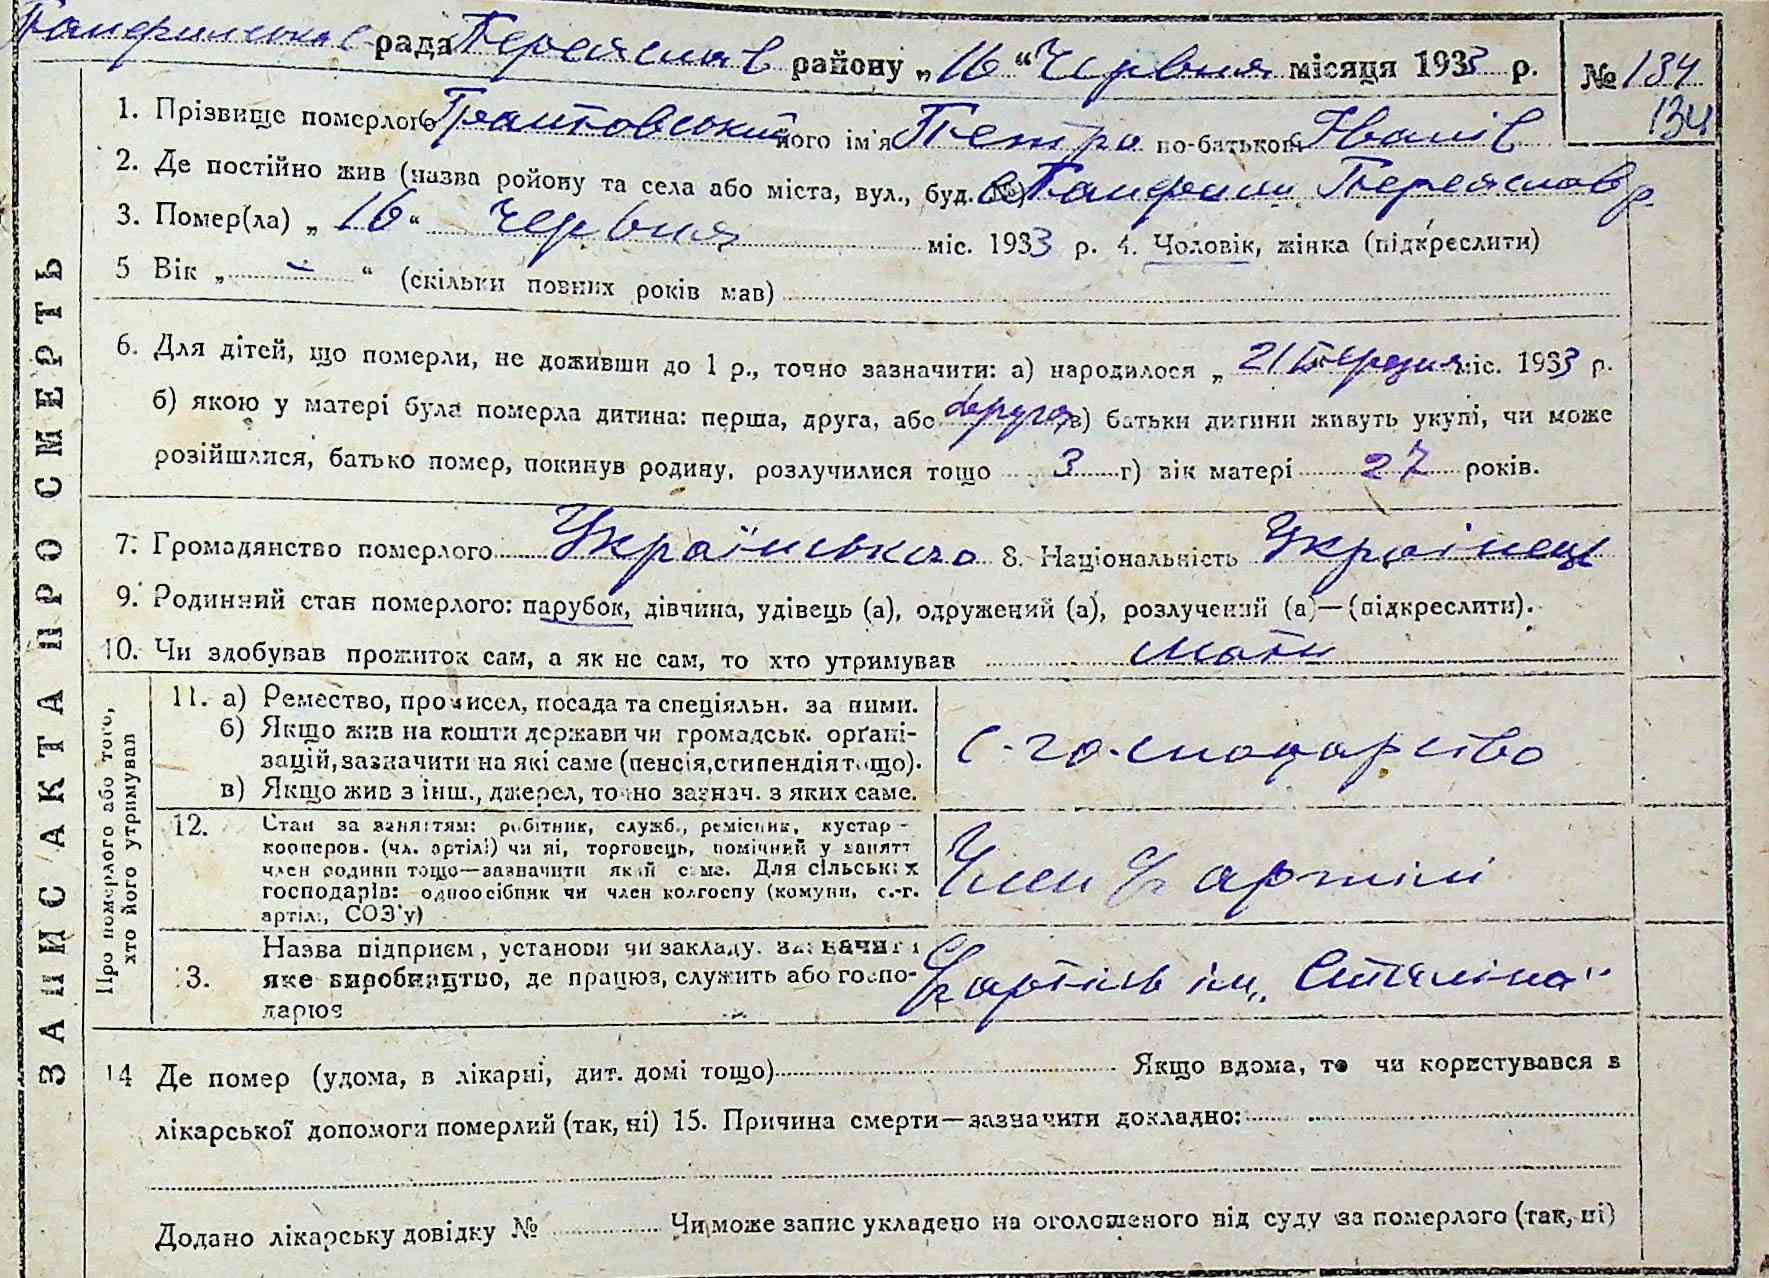 рада Переяслав району „16“ Червня місяця 1933 р. № 134
134
1. Прізвище померлого його ім'я Петро по-батькові Іванів
2. Де постійно жив (назва ройону та села або міста, вул., буд. №) Переяслав р.
3. Помер(ла) „16“ Червня міс. 1933 р. 4. Чоловік, жінка (підкреслити)
5 Вік „ – “ (скільки повних років мав)
6. Для дітей, що померли, не доживши до 1 р., точно зазначити: а) народилося „21 березня міс. 1933 р.
б) якою у матері була померла дитина: перша, друга, або друга в) батьки дитини живуть укупі, чи може
розійшлися, батько помер, покинув родину, розлучилися тощо 3 г) вік матері 27 років.
7. Громадянство померлого Українського 8. Національність Українець
9. Родинний стан померлого: парубок, дівчина, удівець (а), одружений (а), розлучений (а)—(підкреслити).
10. Чи здобував прожиток сам, а як не сам, то хто утримував мати
11. а) Ремество, промисел, посада та спеціяльн. за ними.
б) Якщо жив на кошти держави чи громадськ. орґані-
зацій, зазначити на які саме (пенсія, стипендія тощо).
в) Якщо жив з інш., джерел, точно зазнач. з яких саме.
с-господарство
12. Стан за заняттям: робітник, служб., ремісник, кустар-
кооперов. (чл. артілі) чи ні, торговець, помічний у занятт
член родини тощо—зазначити який саме. Для сільських
господарів: одноосібник чи член колгоспу (комуни, с.-г.
артілі, СОЗ'у)
Член артілі
13. Назва підприєм, установи чи закладу. Зазначити
яке виробництво, де працює, служить або госпо-
дарює
артіль ім. „Сталіна“
14 Де помер (удома, в лікарні, дит. домі тощо) Якщо вдома, то чи користувався з
лікарської допомоги померлий (так, ні) 15. Причина смерти—зазначити докладно:
Додано лікарську довідку № Чи може запис укладено на оголошеного від суду за померлого (так, ні)
ЗАПИС АКТА ПРО СМЕРТЬ
Про померлого або того,
хто його утримував